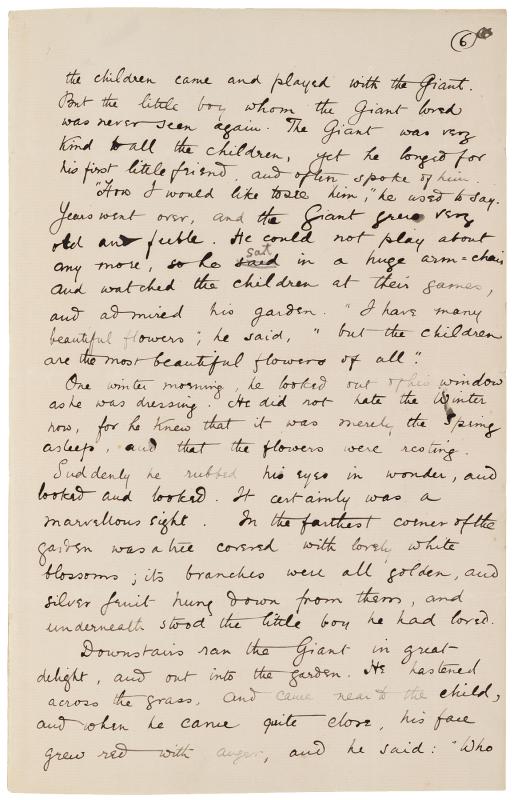 6
the children came and played with the Giant.
But the little boy whom the Giant loved
was never seen again. The Giant was very
kind to all the children, yet he longed for
his first little friend, and often spoke of him.
"How I would like to see him," he used to say.
Years went over, and the Giant grew very
old and feeble. He could not play about
sat
any more, so he said in a huge arm=chair
and watched the children at their games,
and admired his garden. "I have many
beautiful flowers"; he said, "but the children
are the most beautiful flowers of all".
One winter morning, he looked out of his window
as he was dressing. He did not hate the Winter
now, for he knew that it was merely the Spring
asleep, and that the flowers were resting.
Suddenly he rubbed his eyes in wonder, and
looked and looked. It certainly was a
marvellous sight. In the farthest corner of the
garden was a tree covered with lovely white
blossoms; its branches were all golden, and
silver fruit hung down from them, and
underneath stood the little boy he had loved.
Downstairs ran the Giant in great
delight, and out into the garden. He hastened
across the grass, and came near to the child,
and when he came quite close, his face
grew red with anger, and he said: "Who